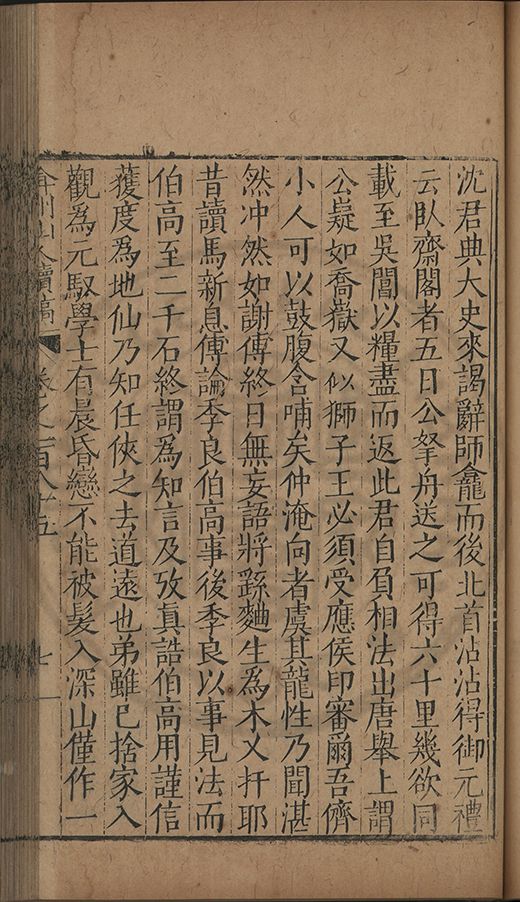 沈君典大史來謁辭師龕而後北首沾沾得御元禮
云臥齋閣者五日公孥舟送之可得六十里幾欲同
載至吳閶以糧盡而返此君自負相法出唐舉上謂
公嶷如喬嶽又似獅子王必須受應侯印審爾吾儕
小人可以鼓腹含哺矣仲淹向者虞其龍性乃聞湛
然冲然如謝傅終日無妄語將繇麯生為木乂扞耶
昔讀馬新息傳論季良伯高事後季良以事見法而
伯高至二千石終謂為知言及攷真誥伯高用謹信
獲度為地仙乃知任俠之去道遠也弟雖已捨家入
觀為元馭學士有晨昏戀不能被髮入深山僅作一
弇州山人續稿 卷之一百八十五 七